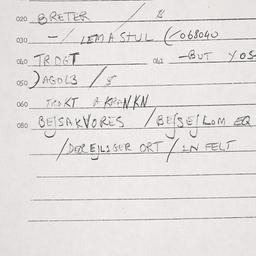 020 BRETER / 8
030 - / LEMASTUL (/068040
040 TROGT 042 -BUT YOS
050 )AGOLB / 5
060 TROKT A KRANKN
080 BEJSAKVORES / BEJSEJLOM EQ
/DEREJLIGER ORT / IN FELT